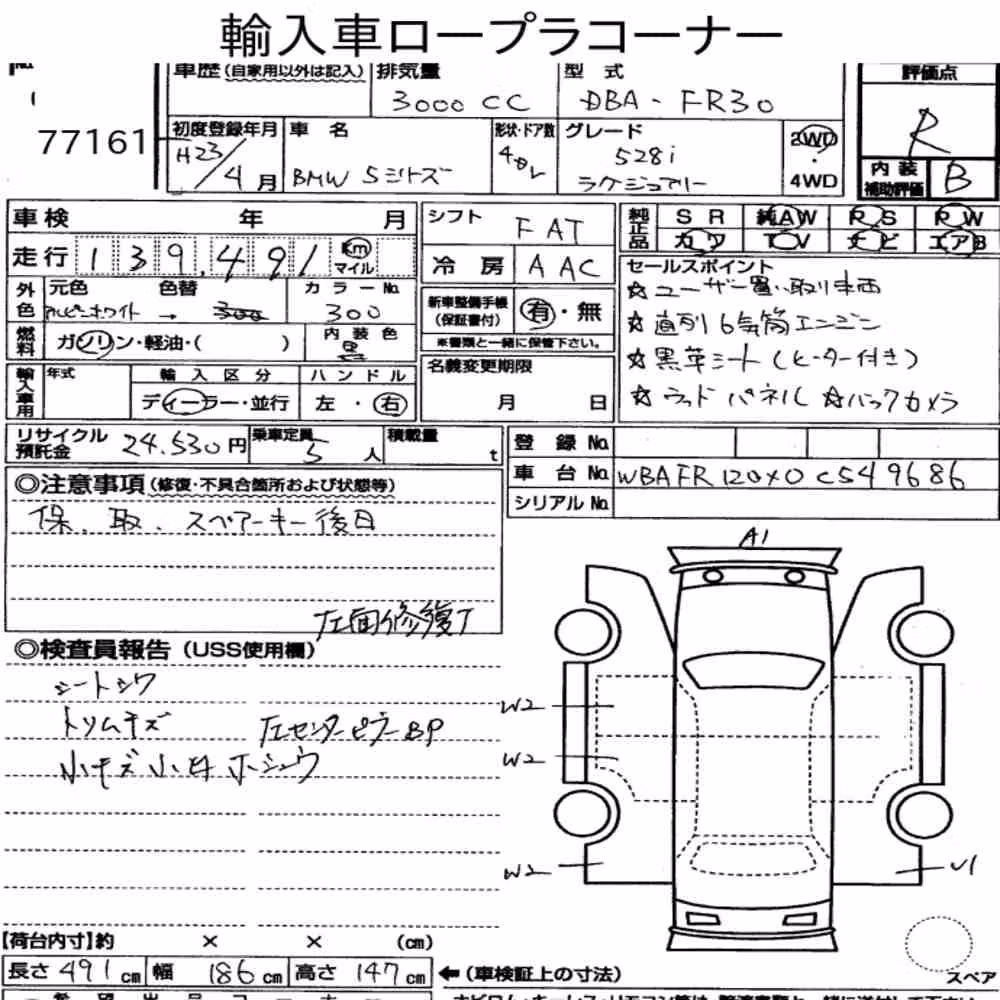 輸入車ロープラコーナー
車歴(自家用以外は記入) 排気量 型式 評価点
3000 CC DBA - FR30 R
77161
初度登録年月 車名 形状・ドア数 グレード 2WD
H23/4月 BMW 5シリーズ 4 528i ・
ラグジュアリー 4WD
内装補助評価 B
車検 年 月
走行 139,491 Km マイル
シフト FAT
冷房 AAC
純正品 SR 純AW PS PW
カワ TV ナビ エアB
外色 元色 色替 カラーNo.
アルピンホワイト → 300 300
燃料 ガソリン・軽油・( ) 内装色 黒
新車整備手帳(保証書付) 有・無
※書類と一緒に保管下さい。
名義変更期限
月 日
セールスポイント
☆ユーザー買い取り車両
☆直列6気筒エンジン
☆黒革シート(ヒーター付き)
☆ウッドパネル ☆バックカメラ
輸入車用 年式 輸入区分 ハンドル
ディーラー・並行 左・右
リサイクル預託金 24.530円 乗車定員 5人 積載量 t
登録No.
車台No. WBAFR120X0C549686
シリアルNo.
◎注意事項(修復・不具合箇所および状態等)
保、取、スペアーキー後日
左面修復了
◎検査員報告(USS使用欄)
シートシワ
トリムキズ 左センターピラーBP
小キズ小凹ホシュウ
A1
W2
W2
W2
U1
スペア
【荷台内寸】約 × × (cm)
長さ 491 cm 幅 186 cm 高さ 147 cm ←(車検証上の寸法)